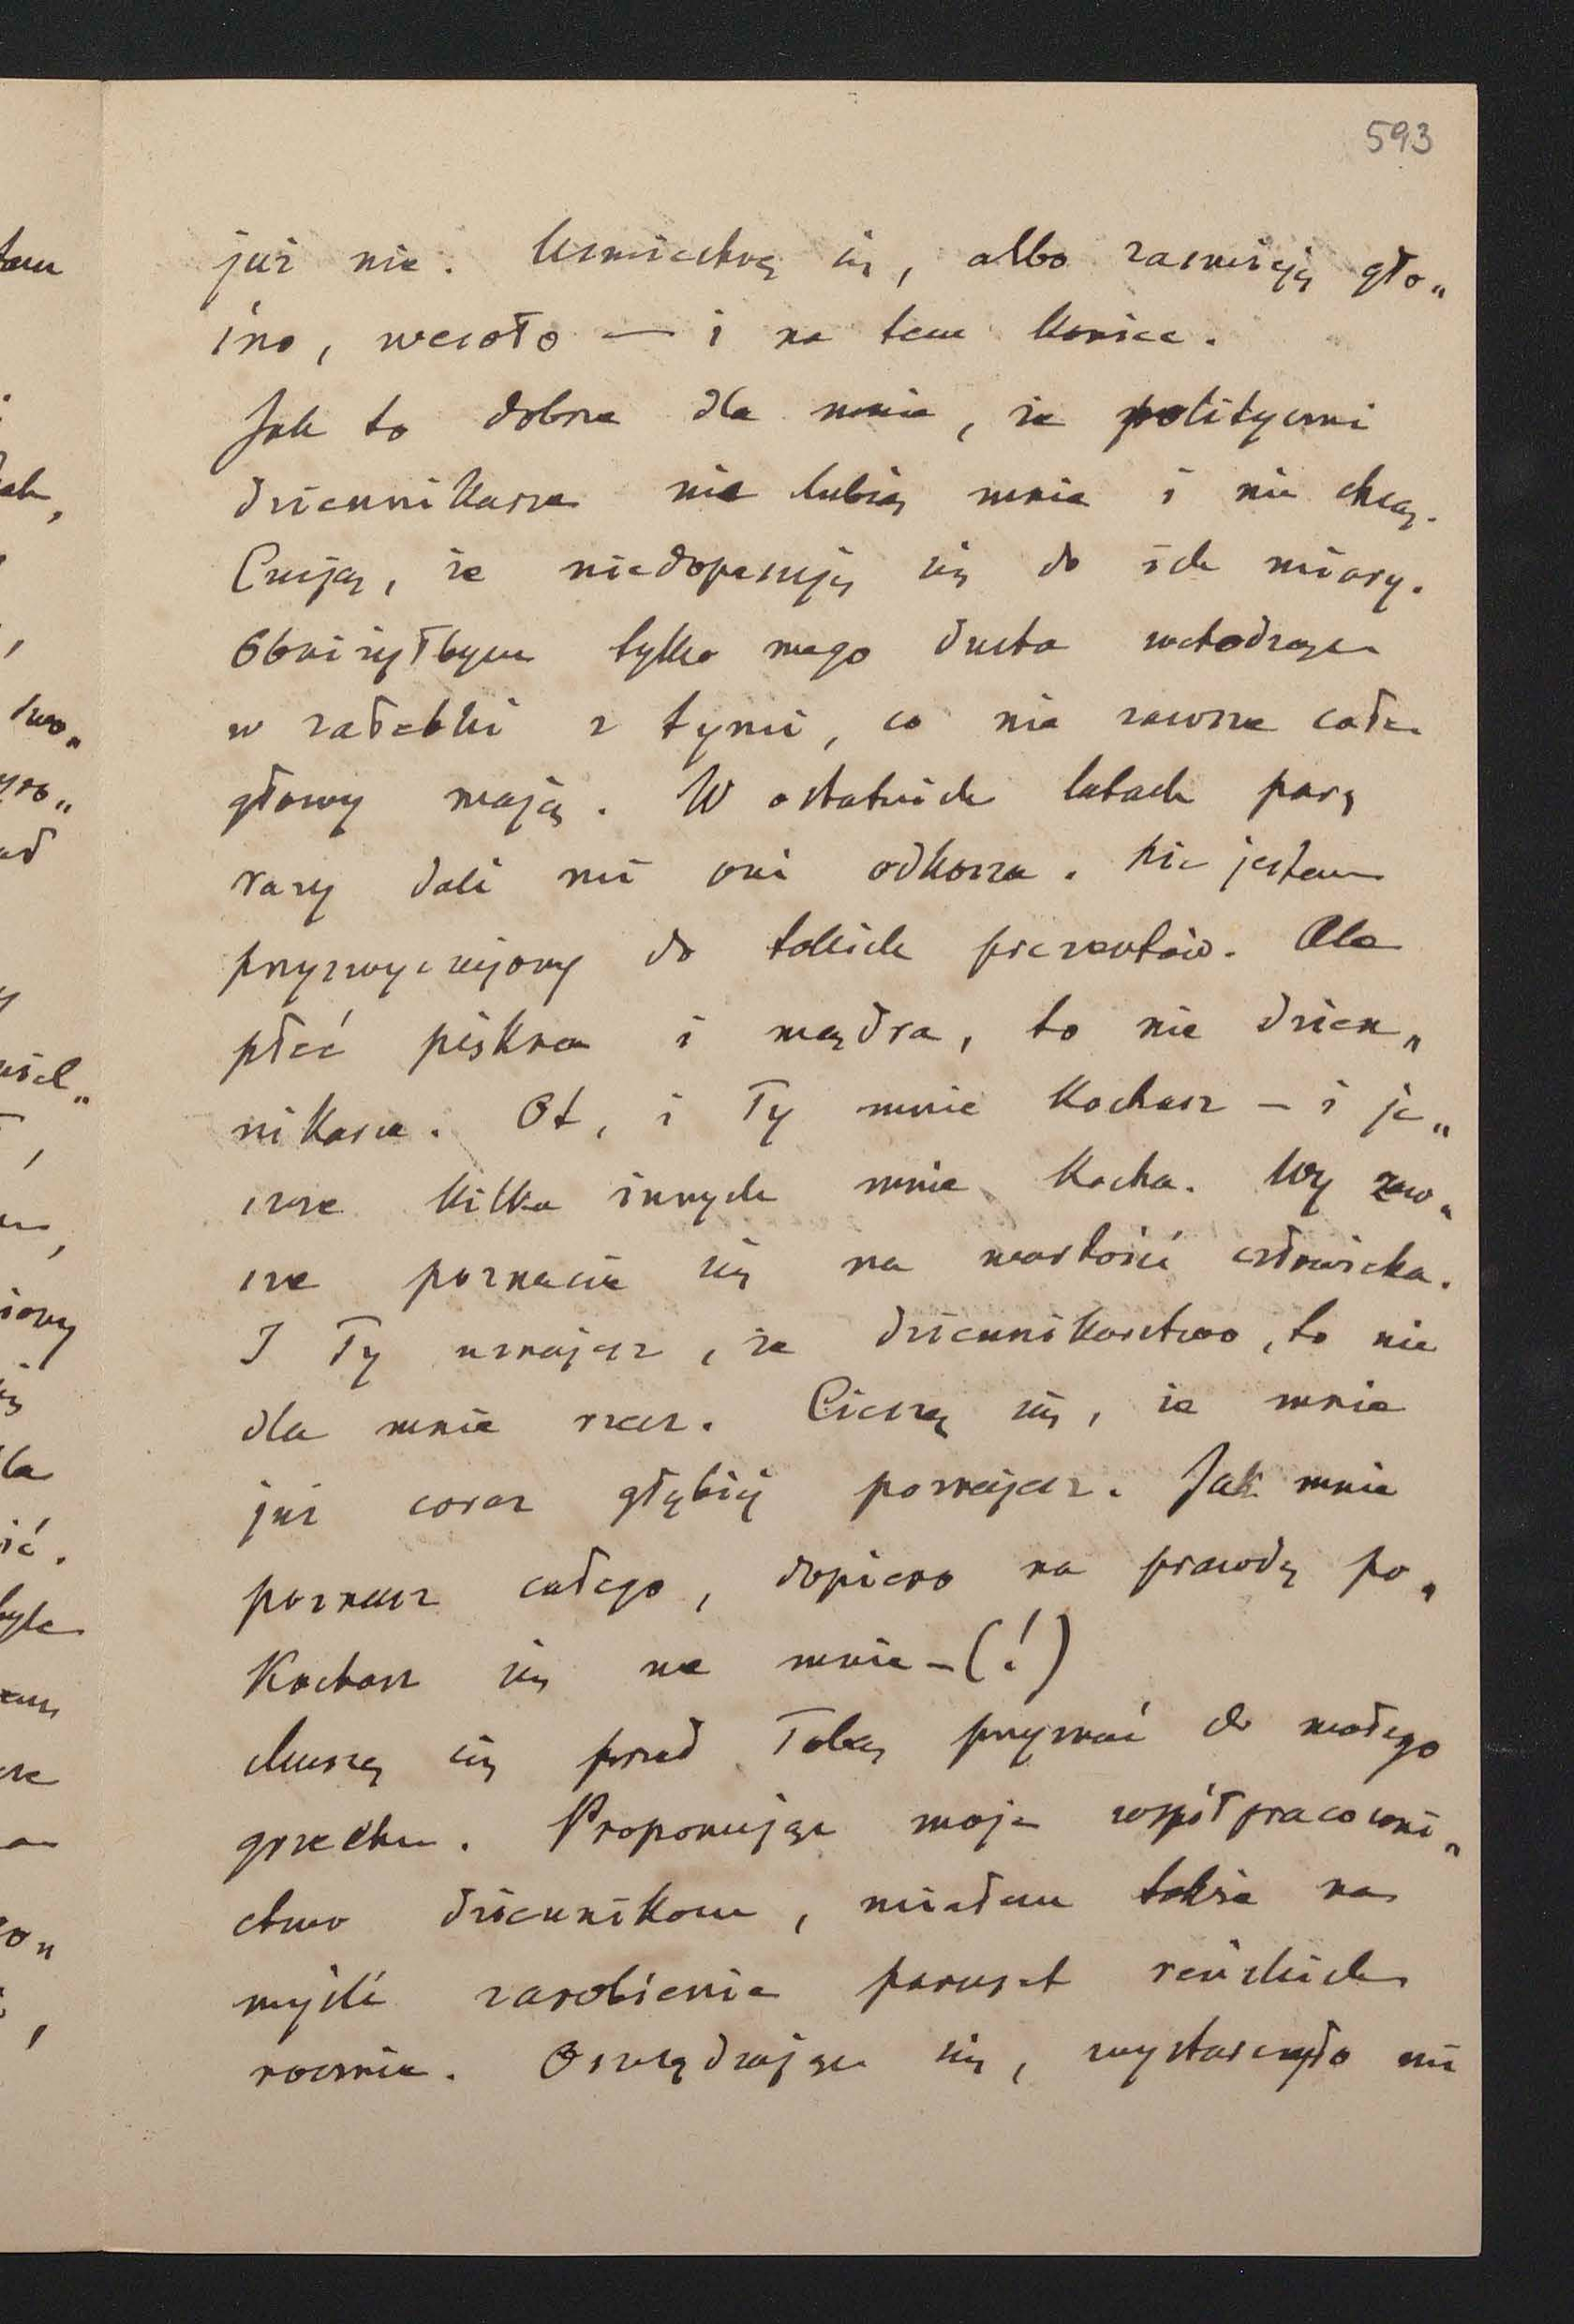 593
już nie. Uśmiechnę się, albo zaśmieję gło„
śno, wesoło — i na tem koniec.
Jak to dobrze dla mnie, że polityczni
dziennikarze nie lubią mnie i nie chcą.
Czują, że niedopasuję się do ich miary.
Obniżyłbym tylko mego ducha wchodząc
w zatebki z tymi, co nie zawsze całe
głowy mają. W ostatnich latach parę
razy dali mi oni odkosza. Nie jestem
przyzwyczajony do takich prezentów. Ale
płeć piękna i mądra, to nie dzien„
nikarze. Ot, i Ty mnie kochasz – i je„
szcze kilka innych mnie kocha. Wy zaw„
sze poznacie się na wartości człowieka.
I Ty uznajesz, że dziennikarstwo, to nie
dla mnie rzecz. Cieszę się, że mnie
już coraz głębiej poznajesz. Jak mnie
poznasz całego, dopiero na prawdę po„
kochasz się we mnie – (!)
Muszę się przed Tobą przyznać do małego
grzechu. Proponując moje współpracowni„
ctwo dziennikom, miałem także na
myśli zarobienie paruset reńskich
rocznie. Oszczędzając się, wystarczyło mi
tam
ak,
two„
ad
usel„
iony
la
ić.
było